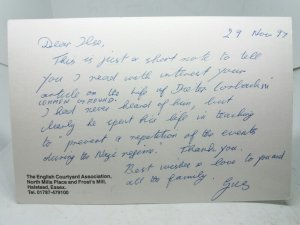 29 Nov 97
Dear Ilse,
This is just a short note to tell
you I read with interest your
article on the Life of Doctor
I had never heard of him, but
clearly he spent his life in teaching
to "prevent a repetition of the events
during the Nazi regime." Thank you.
Best wishes & love to you and
all the family.
The English Courtyard Association,
North Mills Place and Frost's Mill,
Halstead, Essex.
Tel. 01787-479100